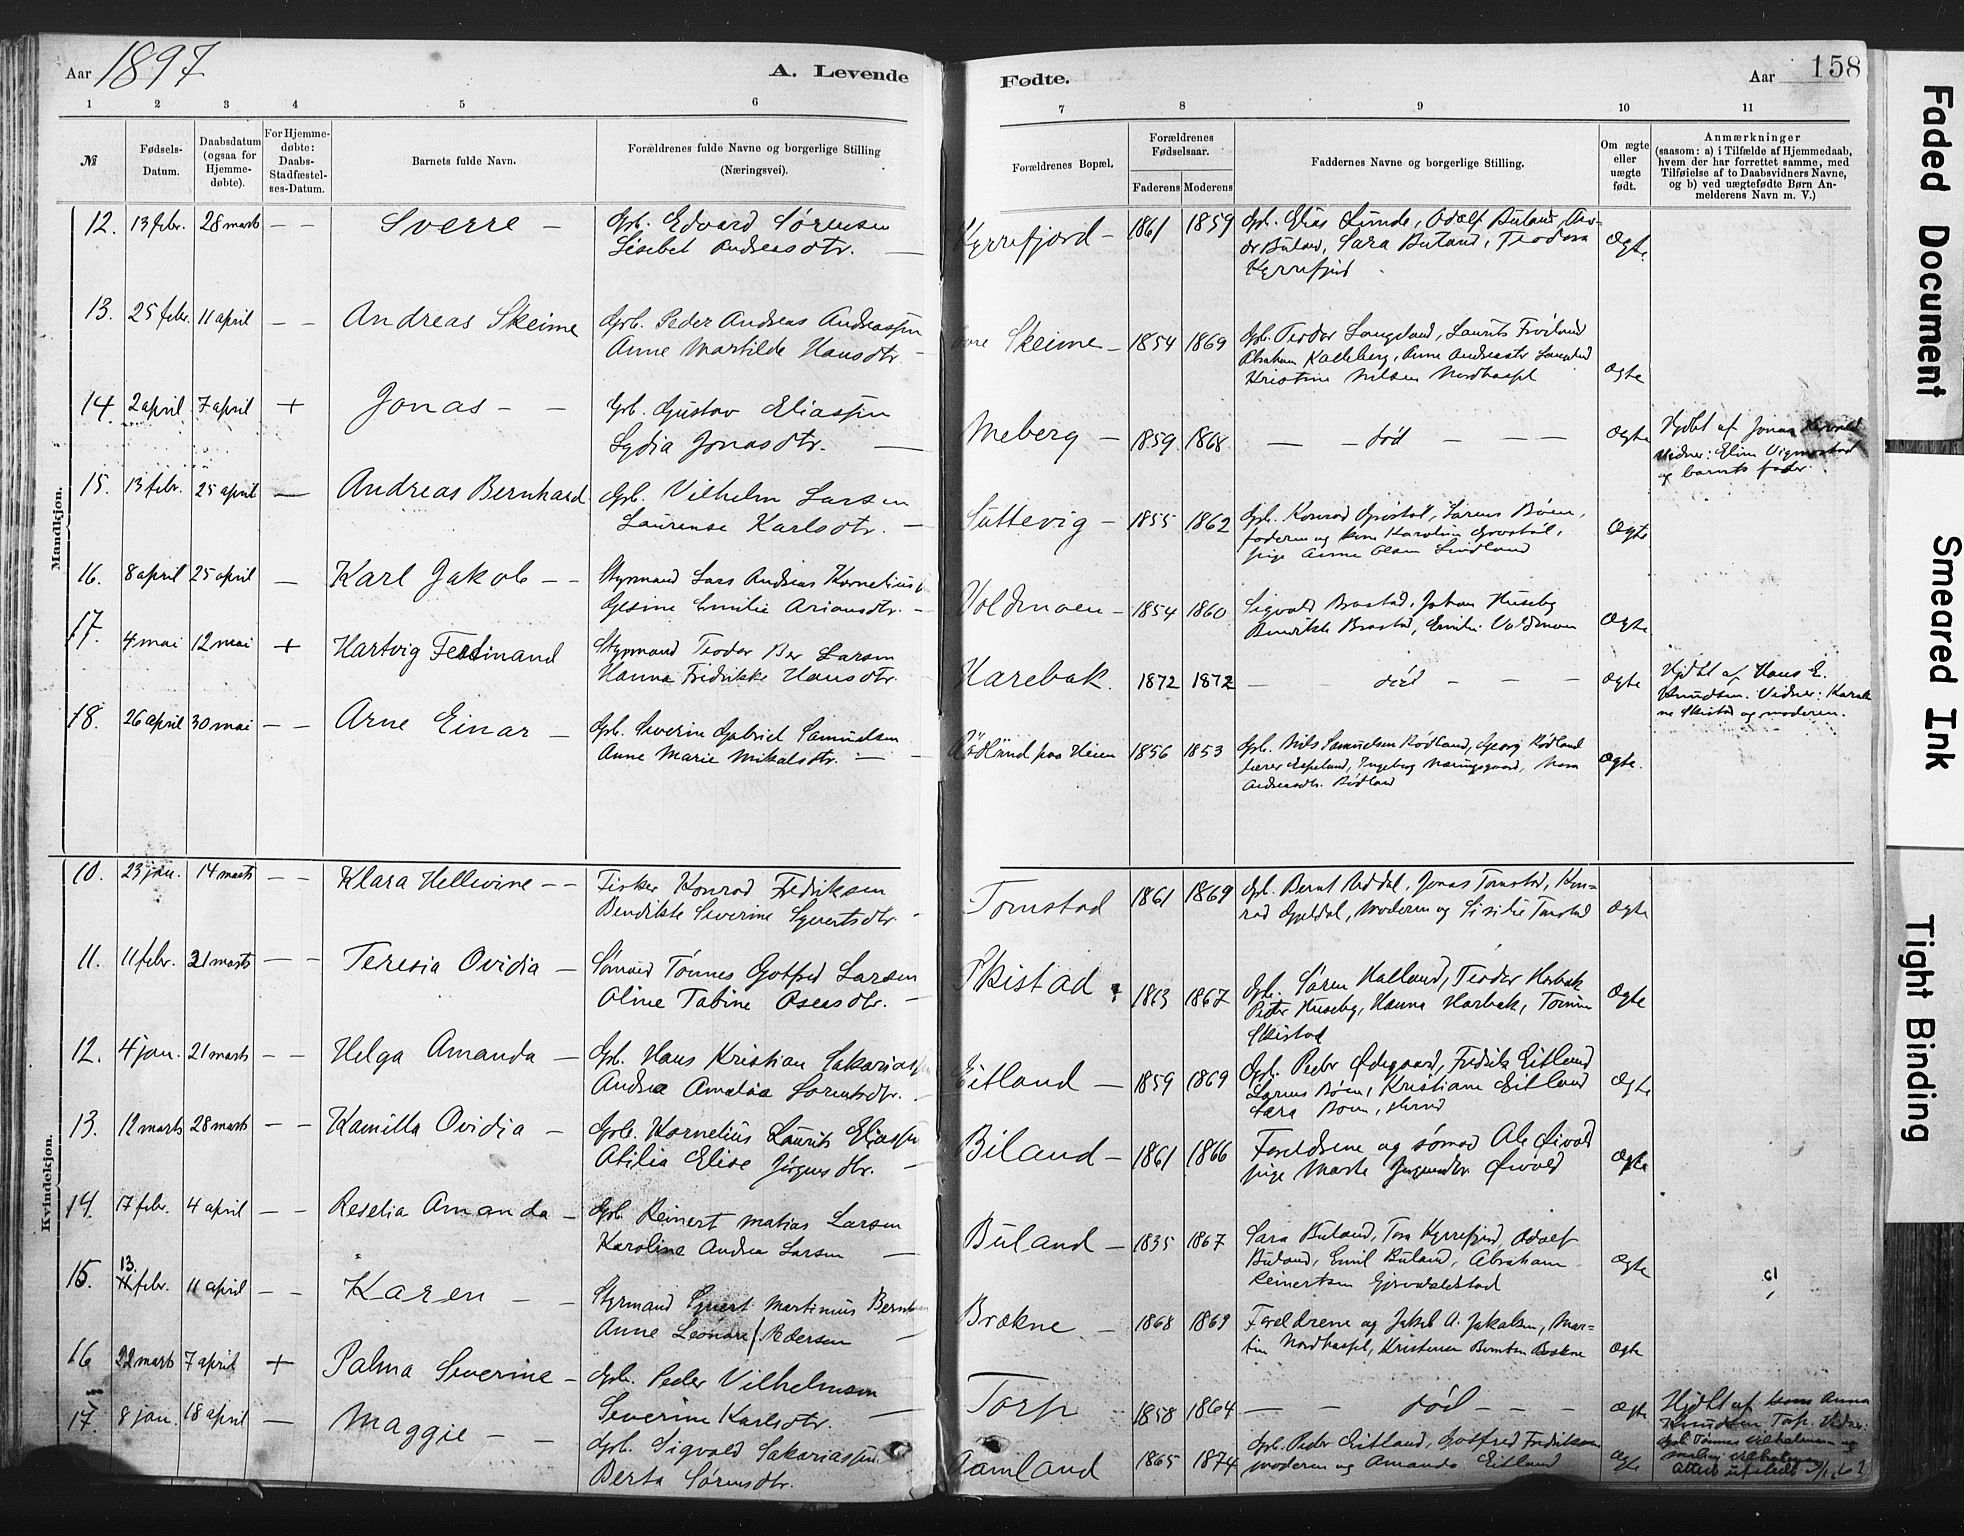 Aar 1897
A. Levende
Fødte.
Aar 158
1 2 3 4 5 6 7 8 9 10 11
№
Fødsels-
Datum.
Daabsdatum
(ogsaa for
Hjemme-
døbte).
For Hjemme-
døbte:
Daabs-
Stadfæstel-
ses-Datum.
Barnets fulde Navn.
Forældrenes fulde Navne og borgerlige Stilling
(Næringsvei).
Forældrenes Bopæl.
Forældrenes
Fødselsaar.
Faderens Moderens
Faddernes Navne og borgerlige Stilling.
Om ægte
eller
uægte
født.
Anmærkninger
(saasom: a) i Tilfælde af Hjemmedaab,
hvem der har forrettet samme, med
Tilføielse af to Daabsvidners Navne,
og b) ved uægtefødte Børn An-
melderens Navn m. V.)
Mandkjøn.
12. 13 febr. 28 marts — — Sverre — Gbr. Edvard Sørensen
Lisebet Andreasdtr. —
Kyrrefjord — 1861 1859 Gbr. Elias Lunde, Adolf Buland,
Buland, Sara Buland, Teodora
Kyrrefjord
Ægte.
13. 25 febr. 11 april — — Andreas Skeime Gbr. Peder Andreas Andreassen
Anne Martilde Hansdtr. —
Skeime — 1854 1869 Gbr. Teodor Langeland, Laurits Frøiland
Abraham Kalleberg, Anne Andreasdtr
Kristine Nilsen Nordhassel
Ægte
14. 2 april 7 april + Jonas — — Gbr. Gustav Eliassen
Lydia Jonasdtr. —
Meberg — 1859 1868 — — død — — — Ægte
Hjdbt af Jonas
Vidner: Eline Vigmostad
og barnets fader.
15. 13 febr. 25 april — Andreas Bernhard Gbr. Vilhelm Larsen
Laurense Karlsdtr. —
1855 1862 Gbr. Konrad
faderen og
pige Anne Olsen Lindland
Ægte
16. 8 april 25 april — Karl Jakob — — Styrmand Lars Andreas Kornelius
Gesine Emilie Ariansdtr. —
Voldmoen — 1854 1860 Sigvald Brastad, Johan Huseby
Bendikte Brastad, Emilie Voldmoen
Ægte
17. 4 mai 12 mai + Hartvig Ferdinand Styrmand Teodor Ber Larsen
Hanna Fredrikke Hansdtr. —
Harebak. 1872 1872 — — død — — — Ægte
Hjdbt af Hans E.
Knudsen. Vidner: Karoli-
ne Skistad og moderen.
18. 26 april 30 mai — — Arne Einar — Gbr. Severin Gabriel Samuelsen
Anne Marie Mikalsdtr. — —
Rødland paa Heien 1856 1853 Gbr. Nils Samuelsen Rødland, Georg Rødland
lærer Espeland, Ingeborg
Andreasdtr. Rødland
Ægte.
Kvindekjøn.
10. 23 jan. 14 marts — — Klara Hellevine — — Fisker Konrad Fredriksen
Bendikte Severine Syvertsdtr. —
Tomstad 1861 1869 Gbr. Bernt Reddal, Jonas Tomstad, Kon-
rad moderen og Sisilie Tomstad
Ægte
11. 11 febr. 21 marts — — Teresia Ovidia — Sømand Tønnes Gotfred Larsen
Oline Tabine Osesdtr. —
Skistad 1863 1867 Gbr. Søren Halland, Teodor Harbak
Peder Huseby, Hanna Harbak,
Skistad
Ægte
12. 4 jan. 21 marts — — Helga Amanda — Gbr. Hans Kristian Sakariassen
Andrea Amalia Lorentsdtr. —
Eitland — 1859 1869 Gbr. Peder Ødegaard, Fredrik Eitland
Larens Boen, Kristiane Eitland
Sara Boen,
Ægte
13. 12 marts 28 marts — — Kamilla Ovidia — Gbr. Kornelius Laurits Eliassen
Atilia Elise Jørgensdtr. —
Biland — 1861 1866 Foreldrene og sømand Ole Øivold
pige Marte Øivold
Ægte
14. 17 febr. 4 april — — Reselia Amanda — Gbr. Reinert Matias Larsen
Karoline Andrea Larsen —
Buland — 1835 1867 Sara Buland, Tora Kyrrefjord, Adolf
Buland, Emil Buland, Abraham
Reinertsen
Ægte
15. 13. febr. 11 april — — Karen — — Styrmand Syvert Martinius
Anne Leonore Pedersen —
Brækne — 1868 1869 Foreldrene og Jakob A. Jakobsen, Mar-
tin Nordhassel, Kristense Brækne
Ægte
16 22 marts 7 april + Palma Severine — Gbr. Peder Vilhelmsen
Severine Karlsdtr. —
Torp 1858 1864 — — død — — — Ægte
Hjdbt af Anna
Knudsen Torp. Vidner:
Gbr. Tønnes Vilhelmsen og
17. 8 jan. 18 april — Maggie — — Gbr. Sigvald Sakariassen
Berta Sørensdtr.
Aamland 1865 1874 Gbr. Peder Eitland, Gotfred Fredriksen
moderen og Amanda Eitland
Ægte
Attest utstedt
Faded Document
Smeared Ink
Tight Binding